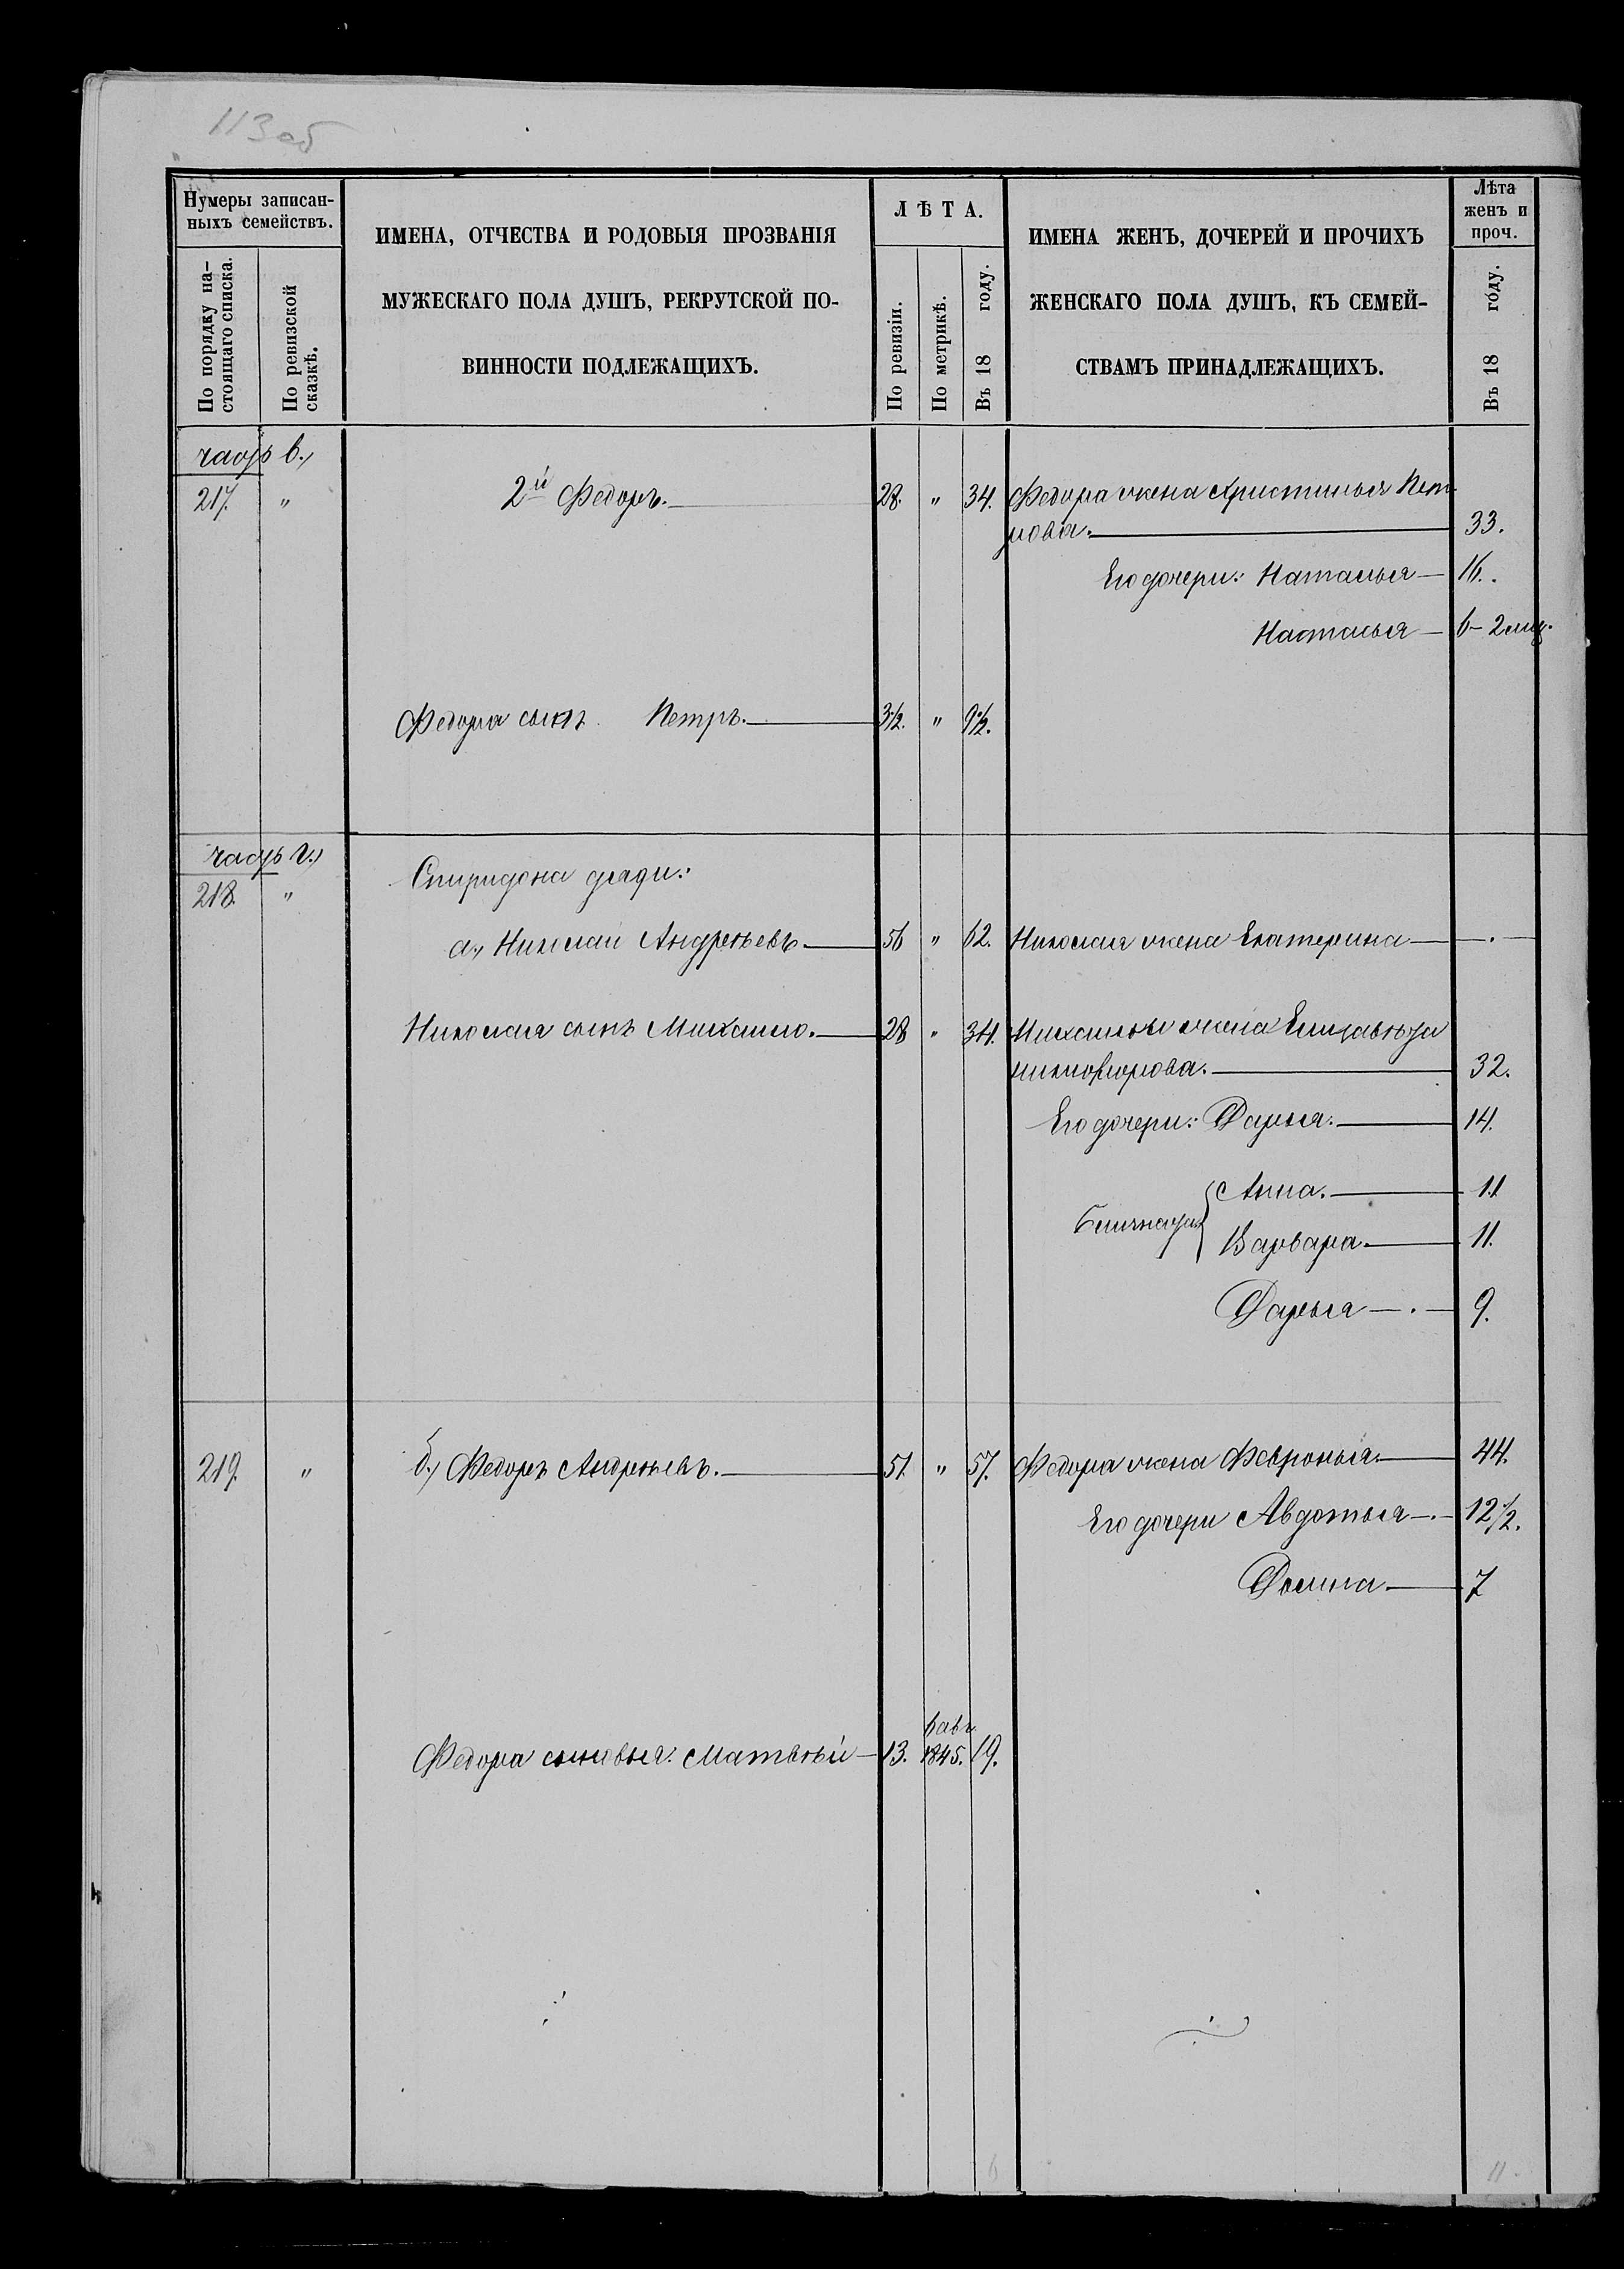 113 об
Нумеры записан-
ныхъ семействъ.
По порядку на-
стоящаго списка.
По ревизской
сказкѣ.
ИМЕНА, ОТЧЕСТВА И РОДОВЫЯ ПРОЗВАНІЯ
МУЖЕСКАГО ПОЛА ДУШЪ, РЕКРУТСКОЙ ПО-
ВИННОСТИ ПОДЛЕЖАЩИХЪ.
ЛѢТА.
По ревизіи.
По метрикѣ.
Въ 18 году.
ИМЕНА ЖЕНЪ, ДОЧЕРЕЙ И ПРОЧИХЪ
ЖЕНСКАГО ПОЛА ДУШЪ, КЪ СЕМЕЙ-
СТВАМЪ ПРИНАДЛЕЖАЩИХЪ.
Лѣта
женъ и
проч.
Въ 18 году.
часть в.,
217. " 2й Федоръ. 28. " 34. Федора жена Христинья Пет-
рова. 33.
Его дочери: Наталья 16.
Настасья 6 - 2 мѣ.
Федора сынъ Петръ. 3½. " 9½.
часть г.,
218. " Спиридона дяди:
а., Николай Андреевъ 56 " 62. Николая жена Екатерина
Николая сынъ Михаило. 28 " 34. Михаилы жена Елизавета
Никифорова. 32.
Его дочери: Дарья. 14.
Близнята
Анна. 11
Варвара. 11.
Дарья 9.
219. " б., Федоръ Андреевъ. 51. " 57. Федора жена Февронья. 44.
Его дочери Авдотья 12½.
Домна 7
Федора сыновья: Матвѣй 13. 1845. 19.